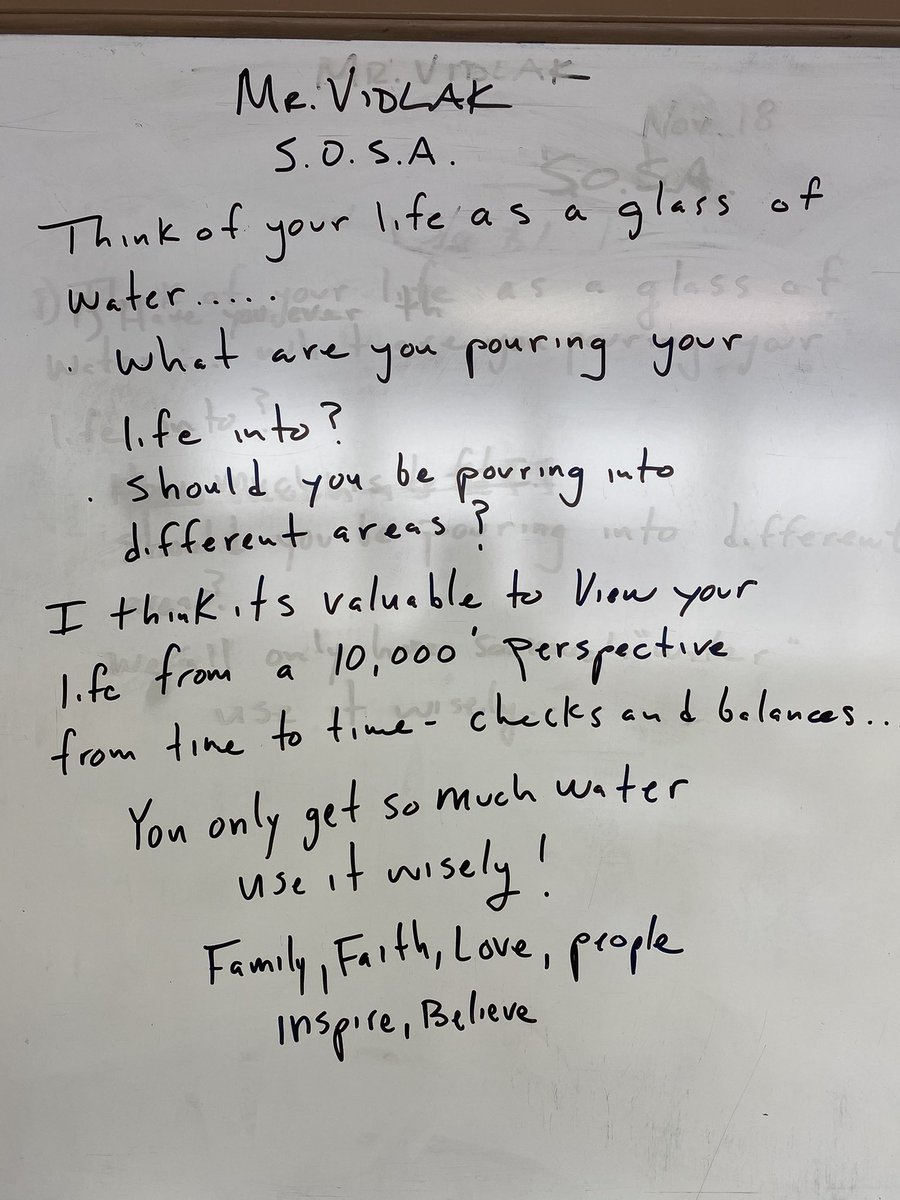 MR. VIDLAK
S.O.S.A.
Think of your life as a glass of
water.....
. What are you pouring your
life into?
. Should you be pouring into
different areas?
I think its valuable to View your
life from a 10,000' perspective
from time to time - checks and balances...
You only get so much water
use it wisely!
Family, Faith, Love, people
inspire, Believe
MR. VIDLAK
Nov. 18
S.O.S.A.